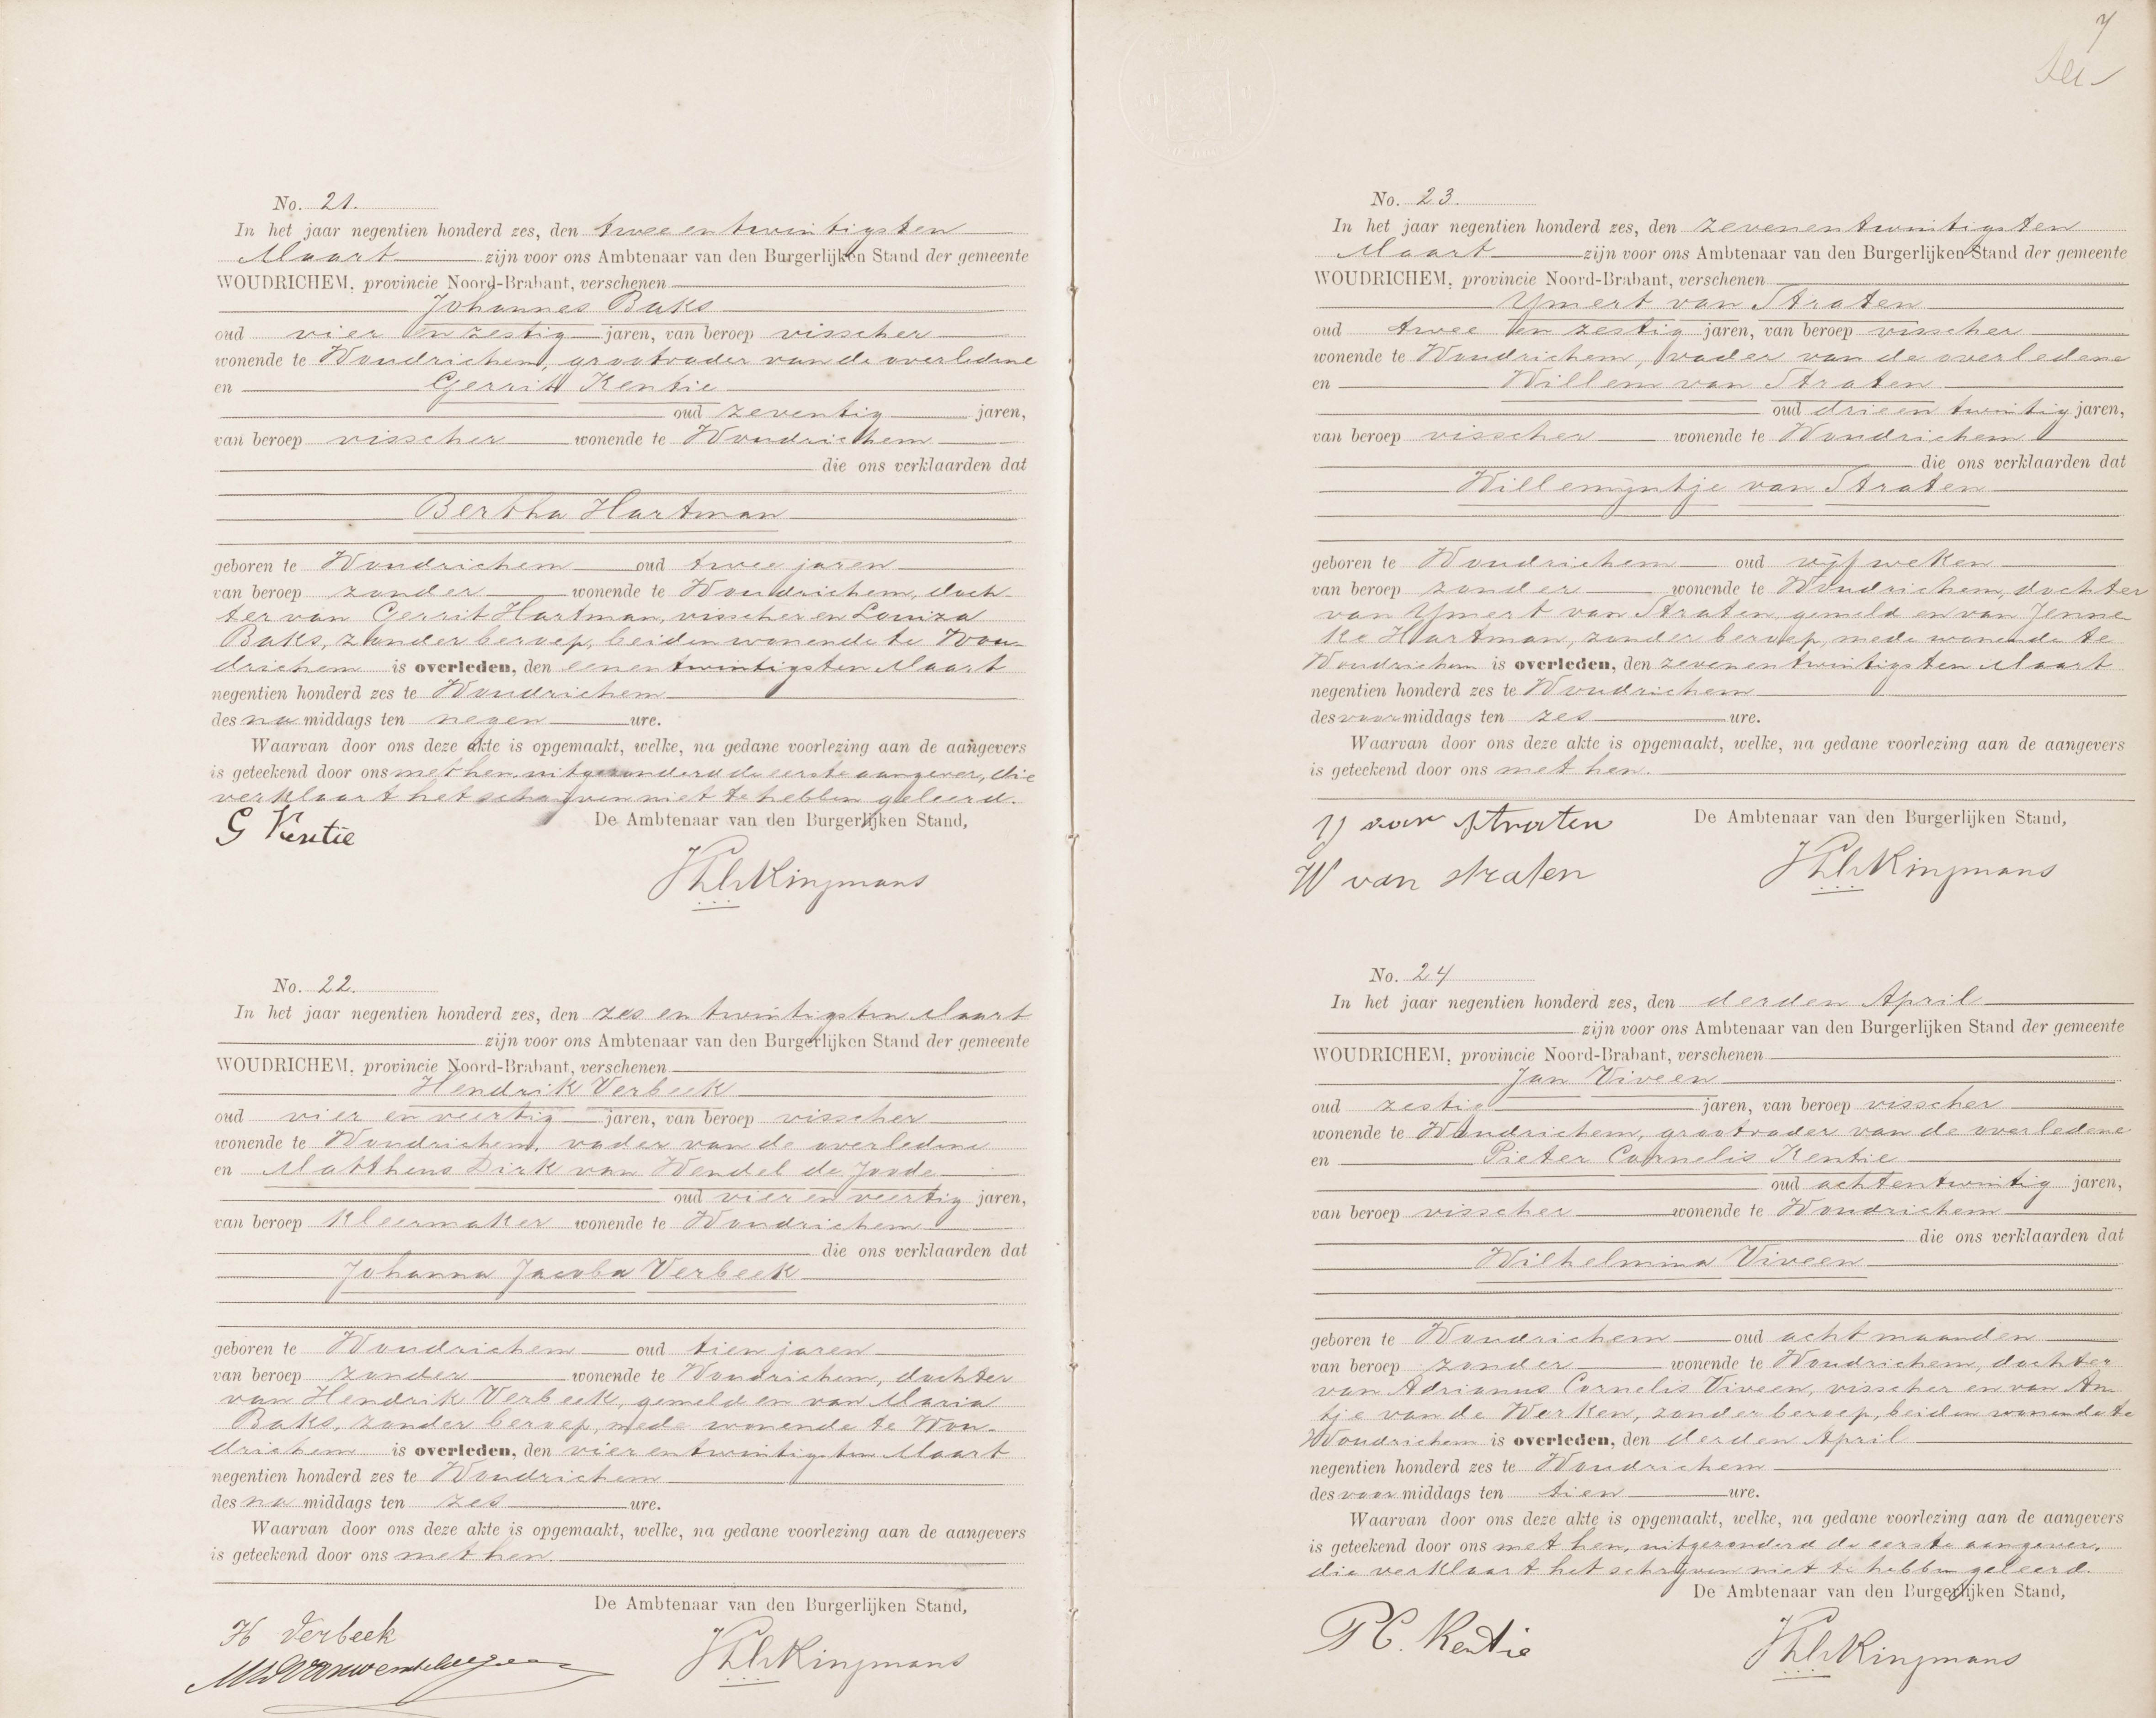 No. 21.
In het jaar negentien honderd zes, den twee en twintigsten
Maart zijn voor ons Ambtenaar van den Burgerlijken Stand der gemeente
WOUDRICHEM, provincie Noord-Brabant, verschenen
Johannes Baks
oud vier en zestig jaren, van beroep visscher
wonende te Woudrichem, grootvader van de overledene
en Gerrit Kentie
oud zeventig jaren,
van beroep visscher wonende te Woudrichem
die ons verklaarden dat
Bertha Hartman
geboren te Woudrichem oud twee jaren
van beroep zonder wonende te Woudrichem, doch-
ter van Gerrit Hartman, visscher en Louiza
Baks, zonder beroep, beiden wonende te Wou-
drichem is overleden, den eenentwintigsten Maart
negentien honderd zes te Woudrichem
des na middags ten negen ure.
Waarvan door ons deze akte is opgemaakt, welke, na gedane voorlezing aan de aangevers
is geteekend door ons met hen, uitgezonderd de eerste aangever, die
verklaart het schrijven niet te hebben geleerd.
De Ambtenaar van den Burgerlijken Stand,
G Kentie
No. 22.
In het jaar negentien honderd zes, den zes en twintigsten Maart
zijn voor ons Ambtenaar van den Burgerlijken Stand der gemeente
WOUDRICHEM, provincie Noord-Brabant, verschenen
Hendrik Verbeek
oud vier en veertig jaren, van beroep visscher
wonende te Woudrichem, vader van de overledene
en Mattheus Dirk van Wendel de Joode
oud vier en veertig jaren,
van beroep kleermaker wonende te Woudrichem
die ons verklaarden dat
Johanna Jacoba Verbeek
geboren te Woudrichem oud tien jaren
van beroep zonder wonende te Woudrichem, dochter
van Hendrik Verbeek, gemeld en van Maria
Baks, zonder beroep, mede wonende te Wou-
drichem is overleden, den vier en twintigsten Maart
negentien honderd zes te Woudrichem
des na middags ten zes ure.
Waarvan door ons deze akte is opgemaakt, welke, na gedane voorlezing aan de aangevers
is geteekend door ons met hen.
De Ambtenaar van den Burgerlijken Stand,
H Verbeek
7
No. 23.
In het jaar negentien honderd zes, den zevenentwintigsten
Maart zijn voor ons Ambtenaar van den Burgerlijken Stand der gemeente
WOUDRICHEM, provincie Noord-Brabant, verschenen
Ymert van Straten
oud twee en zestig jaren, van beroep visscher
wonende te Woudrichem, vader van de overledene
en Willem van Straten
oud drieen twintig jaren,
van beroep visscher wonende te Woudrichem
die ons verklaarden dat
Willemijntje van Straten
geboren te Woudrichem oud vijf weken
van beroep zonder wonende te Woudrichem, dochter
van Ymert van Straten, gemeld en van Jenne-
ke Hartman, zonder beroep, mede wonende te
Woudrichem is overleden, den zevenentwintigsten Maart
negentien honderd zes te Woudrichem
des voor middags ten zes ure.
Waarvan door ons deze akte is opgemaakt, welke, na gedane voorlezing aan de aangevers
is geteekend door ons met hen.
De Ambtenaar van den Burgerlijken Stand,
IJ van Straten
W van straten
No. 24
In het jaar negentien honderd zes, den derden April
zijn voor ons Ambtenaar van den Burgerlijken Stand der gemeente
WOUDRICHEM, provincie Noord-Brabant, verschenen
Jan Viveen
oud zestig jaren, van beroep visscher
wonende te Woudrichem, grootvader van de overledene
en Pieter Cornelis Kentie
oud achtentwintig jaren,
van beroep visscher wonende te Woudrichem
die ons verklaarden dat
Wilhelmina Viveen
geboren te Woudrichem oud acht maanden
van beroep zonder wonende te Woudrichem, dochter
van Adrianus Cornelis Viveen, visscher en van An-
tje van de Werken, zonder beroep, beiden wonende te
Woudrichem is overleden, den derden April
negentien honderd zes te Woudrichem
des voor middags ten tien ure.
Waarvan door ons deze akte is opgemaakt, welke, na gedane voorlezing aan de aangevers
is geteekend door ons met hen, uitgezonderd de eerste aangever,
die verklaart het schrijven niet te hebben geleerd.
De Ambtenaar van den Burgerlijken Stand,
P C. Kentie